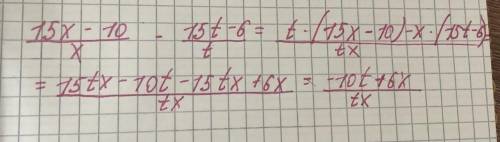 (15x - 10)/x - (15t - 6)/t = (t · (15x - 10) - x · (15t - 6))/tx
= (15tx - 10t - 15tx + 6x)/tx = (-10t + 6x)/tx